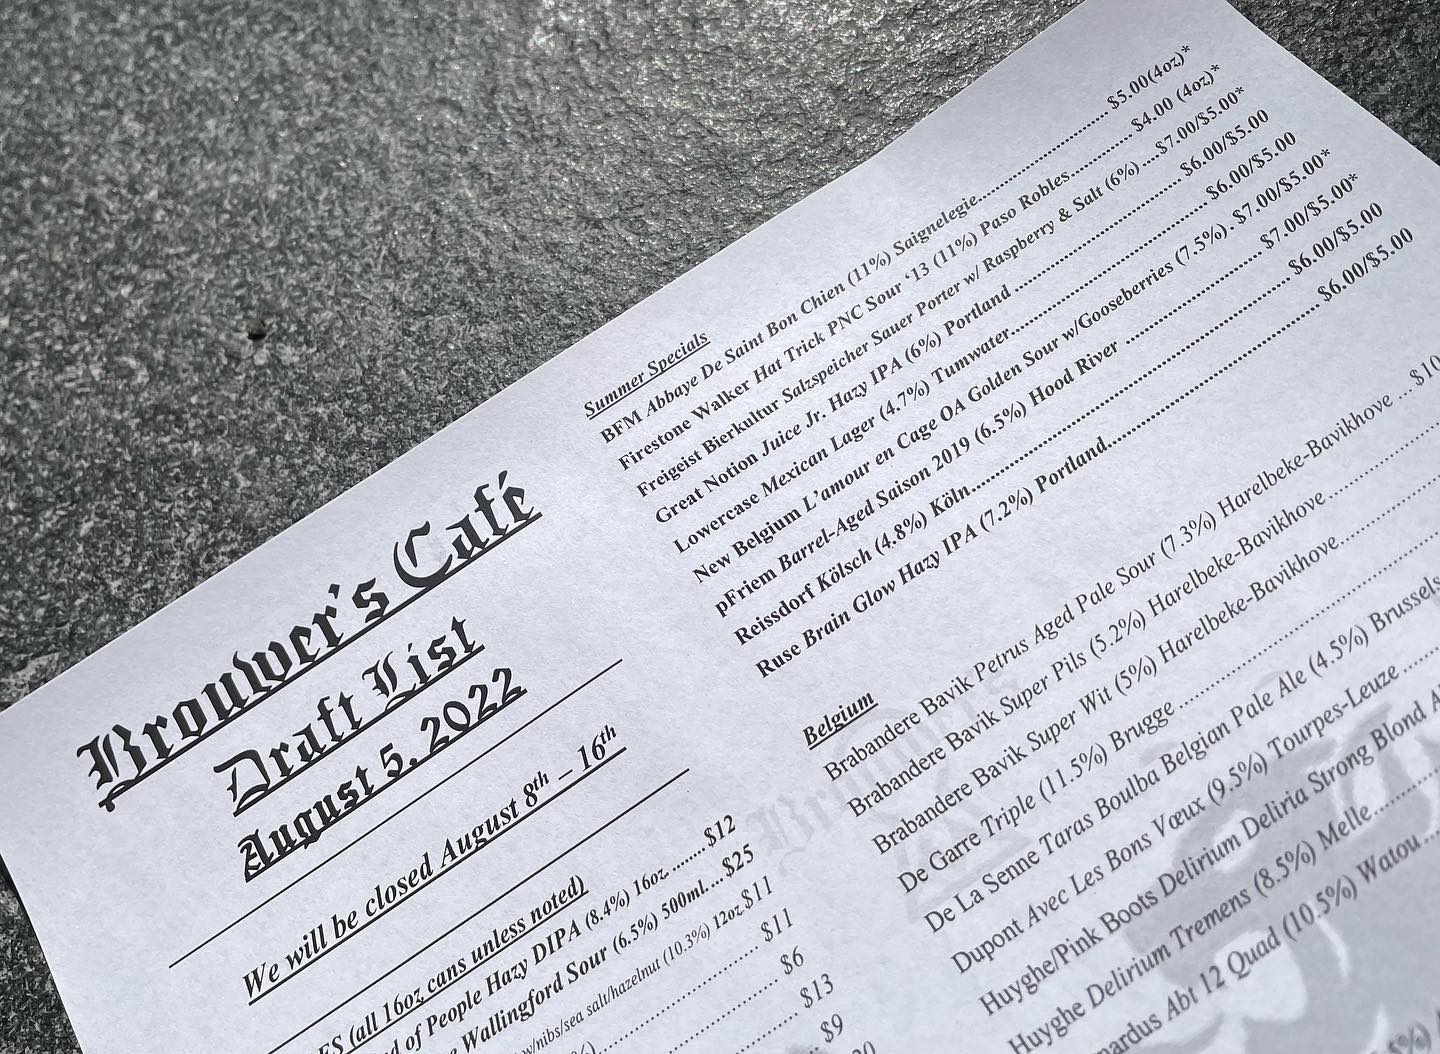 Brouwer's Café
Draft List
August 5, 2022
We will be closed August 8th – 16th
(all 16oz cans unless noted)
of People Hazy DIPA (8.4%) 16oz ........ $12
Wallingford Sour (6.5%) 500ml.... $25
w/nibs/sea salt/hazelnut (10.3%) 12oz $11
$11
$6
$13
$9
Summer Specials
BFM Abbaye De Saint Bon Chien (11%) Saignelegie........................ $5.00(4oz)*
Firestone Walker Hat Trick PNC Sour '13 (11%) Paso Robles........... $4.00 (4oz)*
Freigeist Bierkultur Salzspeicher Sauer Porter w/ Raspberry & Salt (6%) ....$7.00/$5.00*
Great Notion Juice Jr. Hazy IPA (6%) Portland ............................ $6.00/$5.00
Lowercase Mexican Lager (4.7%) Tumwater................................ $6.00/$5.00
New Belgium L'amour en Cage OA Golden Sour w/Gooseberries (7.5%). $7.00/$5.00*
pFriem Barrel-Aged Saison 2019 (6.5%) Hood River ........................ $7.00/$5.00*
Reissdorf Kölsch (4.8%) Köln.................................................. $6.00/$5.00
Ruse Brain Glow Hazy IPA (7.2%) Portland.................................. $6.00/$5.00
Belgium
Brabandere Bavik Petrus Aged Pale Sour (7.3%) Harelbeke-Bavikhove ...$10
Brabandere Bavik Super Pils (5.2%) Harelbeke-Bavikhove
Brabandere Bavik Super Wit (5%) Harelbeke-Bavikhove
De Garre Triple (11.5%) Brugge
De La Senne Taras Boulba Belgian Pale Ale (4.5%) Brussels
Dupont Avec Les Bons Vœux (9.5%) Tourpes-Leuze
Huyghe/Pink Boots Delirium Deliria Strong Blond
Huyghe Delirium Tremens (8.5%) Melle
Abt 12 Quad (10.5%) Watou